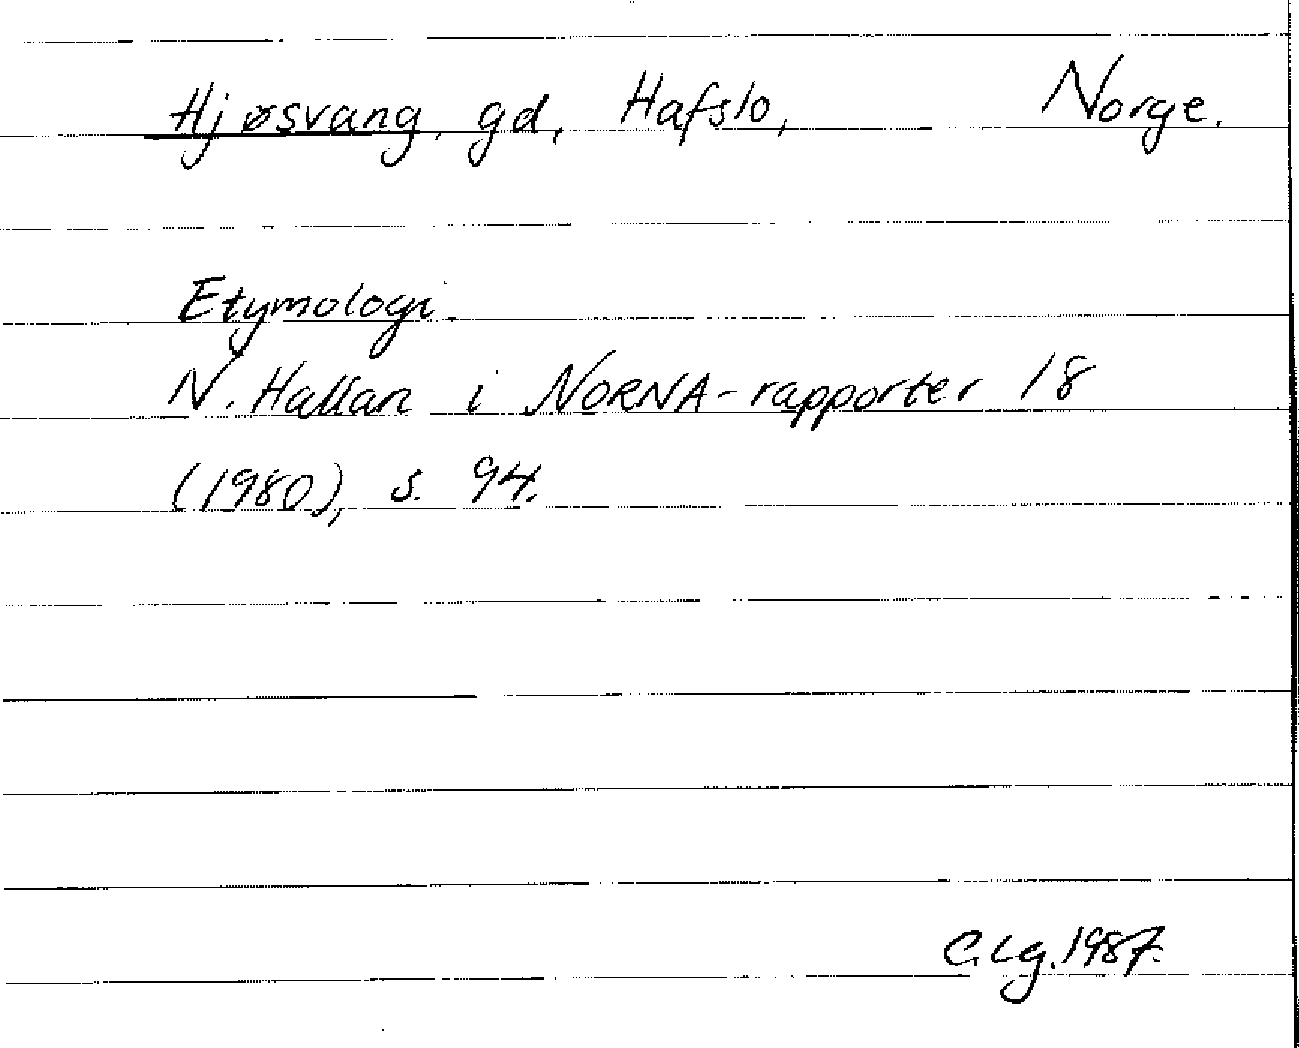 Hjøsvang, gd, Hafslo, Norge.
Etymologi.
N. Hallan i NORNA-rapporter 18
(1980), s. 94.
C.Lg. 1987.